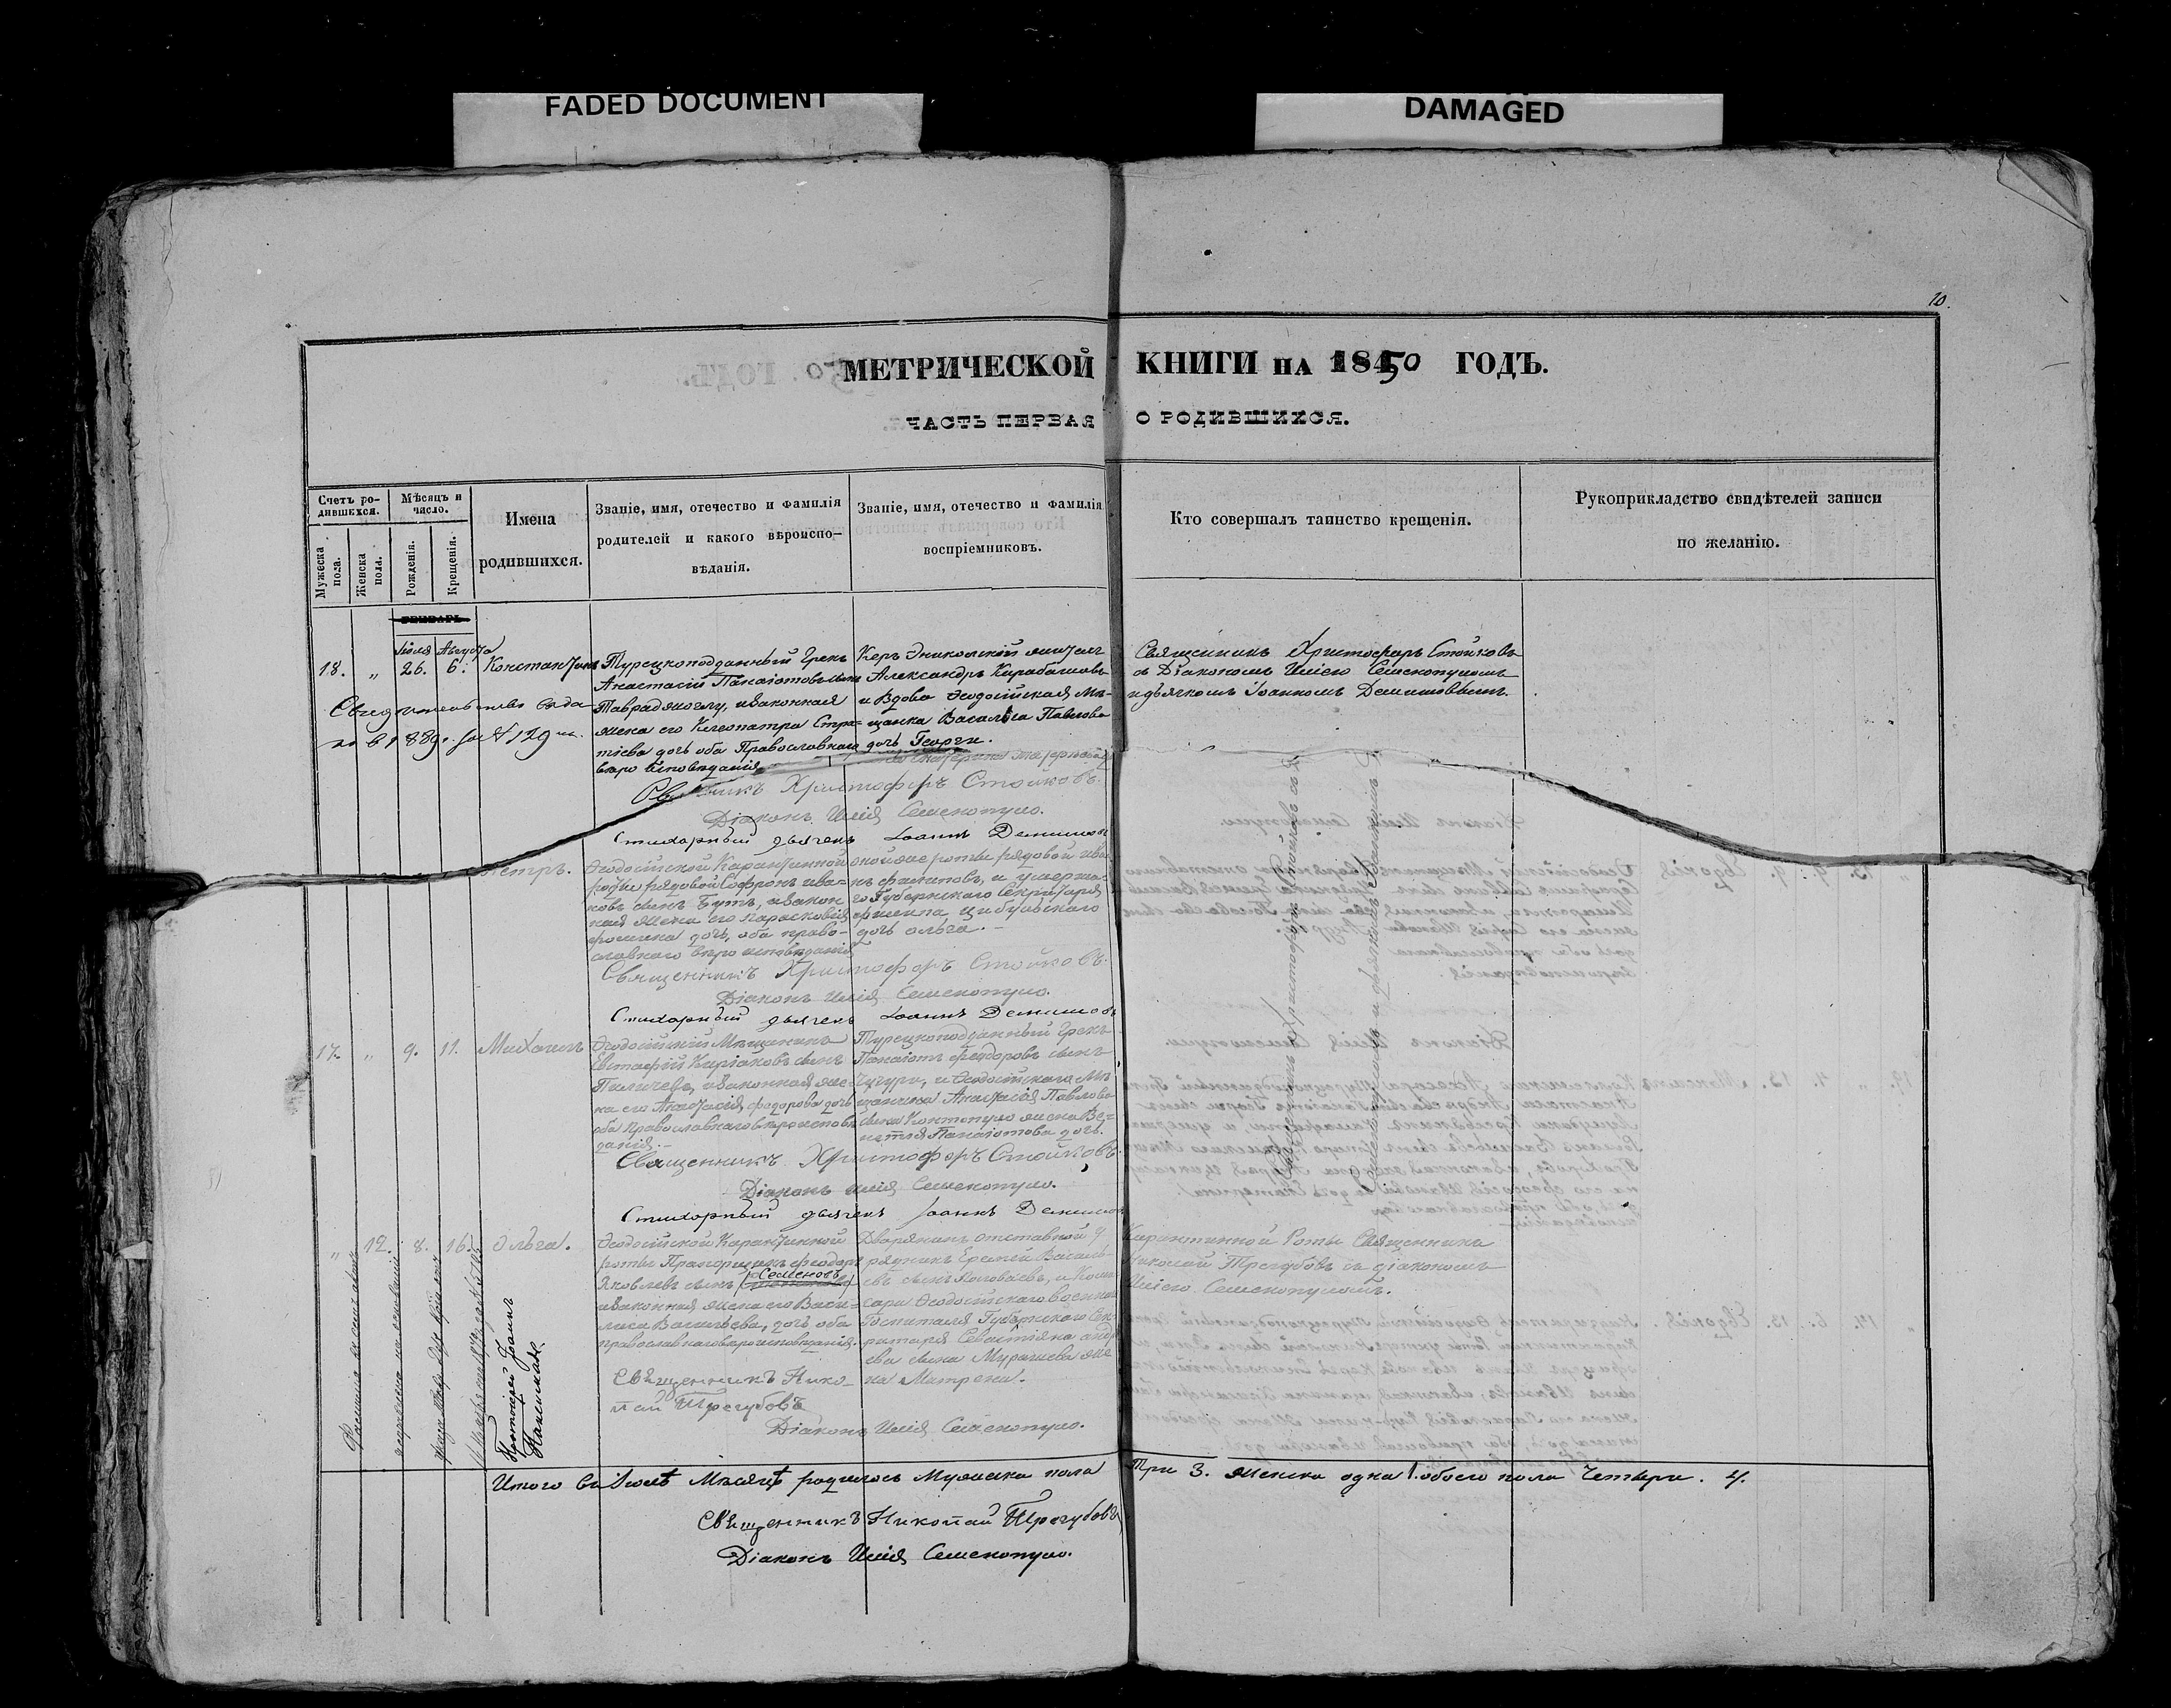 FADED DOCUMENT
DAMAGED
10.
МЕТРИЧЕСКОЙ КНИГИ НА 1850 ГОДЪ.
ЧАСТЬ ПЕРВАЯ О РОДИВШИХСЯ.
Счетъ ро-
дившихся.
Мужеска пола.
Женска пола.
Мѣсяцъ и
число.
Рожденія.
Крещенія.
Имена
родившихся.
Званіе, имя, отечество и фамилія
родителей и какого вѣроиспо-
вѣданія.
Званіе, имя, отечество и фамилія
воспріемниковъ.
Кто совершалъ таинство крещенія.
Рукоприкладство свидѣтелей записи
по желанію.
ГЕНВАРЬ
Іюля Августа
18. „ 26. 6. Константинъ
Турецкоподданный Грекъ
Анастасій Панаіотовъ сынъ
Таврадзкоглу, и законная
жена его Клеопатра Стра-
тіева дочь оба Православнаго
вѣроисповѣданія
Керъ Эникольскій житель
Александръ Карабашовъ
и Вдова Ѳеодосійская Мѣ-
щанка Василиса Павлова
дочь Георги.
Священникъ Христофоръ Стойковъ
съ Діакономъ Иліею Семенопуломъ
и дьячкомъ Іоанномъ Демишовымъ
Свидѣтельство выда-
но въ 1889 г. за № 129 м.
Христофоръ Стойковъ.
Діаконъ Илія Семенопуло.
Стихарный дьячекъ Іоаннъ Демишовъ
Петръ.
Ѳеодосійской Карантинной
роты рядовой Софронъ Ива-
новъ сынъ Бутъ, и закон-
ная жена его Парасковія
Фомина дочь, оба право-
славнаго вѣроисповѣданія
той же роты рядовой Ива-
нъ Филиповъ, и умерша-
го Губернскаго Секретаря
Филипа Цибульскаго
дочь Ольга.
Священникъ Христофоръ Стойковъ.
Діаконъ Илія Семенопуло.
Стихарный дьячекъ Іоаннъ Демишовъ
17. „ 9. 11. Михаилъ
Ѳеодосійскій Мѣщанинъ
Евстафій Киріаковъ сынъ
Пиличевъ, и законная же-
на его Анастасія Федорова дочь
оба Православнаго вѣроисповѣ-
данія.
Турецкоподданный Грекъ
Панаіотъ Феодоровъ сынъ
Чучури, и Ѳеодосійскаго Мѣ-
щанина Анастасія Павлова
сына Контопуло жена Ве-
нетія Панаіотова дочь.
Священникъ Христофоръ Стойковъ.
Діаконъ Илія Семенопуло.
Стихарный дьячекъ Іоаннъ Демишовъ
„ 12. 8. 16. Ольга.
Ѳеодосійской Карантинной
роты Прапорщикъ Феодоръ
Яковлевъ сынъ (Семеновъ)
и законная жена его Васи-
лиса Васильева, дочь оба
православнаго вѣроисповѣданія.
Дворянинъ отставной У
рядникъ Еремей Василь-
евъ сынъ Головачевъ, и Коми-
сара Ѳеодосійскаго военнаго
Госпиталя Губернскаго Сек-
ретаря Севастіяна Андре
ева сына Мурачева же
на Матрена.
Карантинной Роты Священникъ
Николай Трегубовъ съ діакономъ
Иліею Семенопуломъ.
Священникъ Нико-
лай Трегубовъ
Діаконъ Илія Семенопуло.
Протоіерей Іоаннъ
Итого въ Іюлѣ Мѣсяцѣ родилось Мужеска пола Три 3. женска одна 1. обоего пола Четыре. 4.
Священникъ Николай Трегубовъ
Діаконъ Илія Семенопуло.